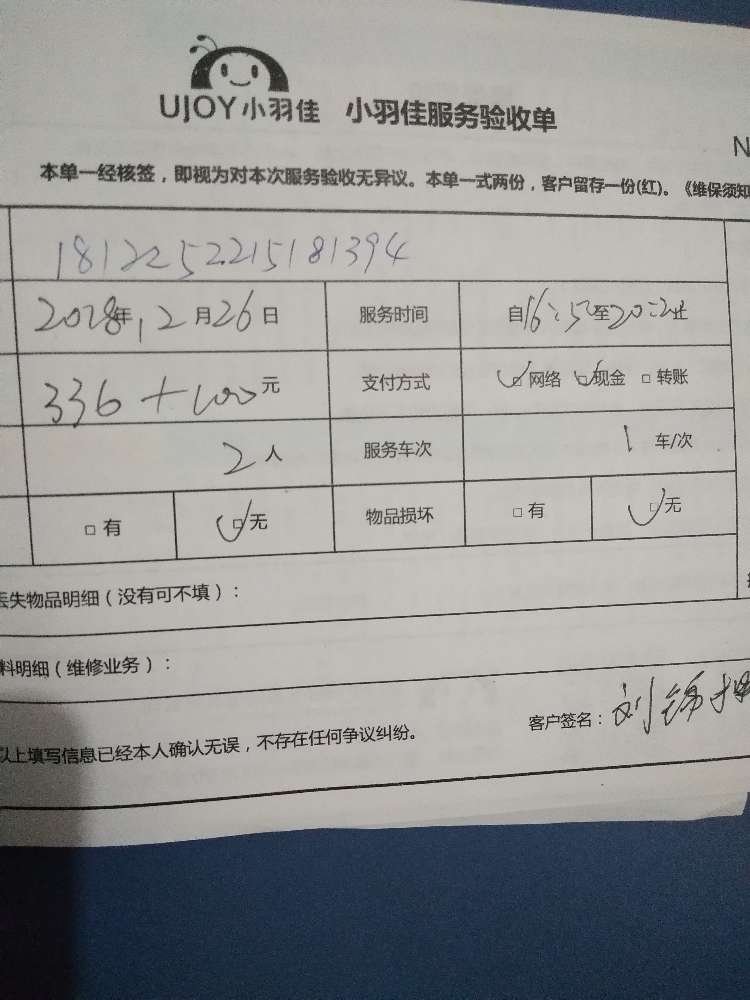 UJOY小羽佳 小羽佳服务验收单
N
本单一经核签，即视为对本次服务验收无异议。本单一式两份，客户留存一份(红)。《维保须知
1812252215181394
2018年12月26日 服务时间 自16:5 至20:2 止
336+100元 支付方式 网络 现金 □转账
2人 服务车次 1车/次
□有 □无 物品损坏 □有 □无
丢失物品明细（没有可不填）：
料明细（维修业务）：
以上填写信息已经本人确认无误，不存在任何争议纠纷。 客户签名：刘锦